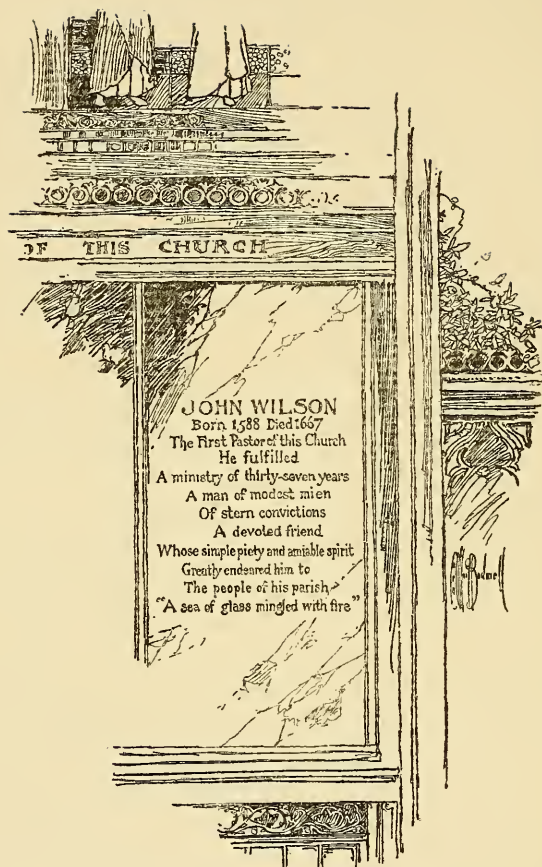 OF THIS CHURCH
JOHN WILSON
Born 1588 Died 1667
The First Pastor of this Church
He fulfilled
A ministry of thirty-seven years
A man of modest mien
Of stern convictions
A devoted friend
Whose simple piety and amiable spirit
Greatly endeared him to
The people of his parish
"A sea of glass mingled with fire"